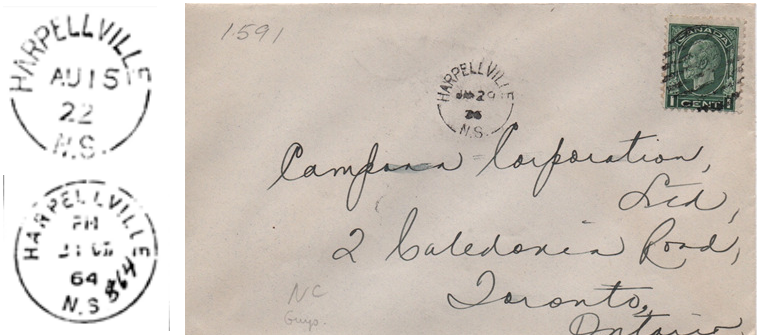 HARPELLVILLE
AU 15
22
N.S.
HARPELLVILLE
PM
64
N.S
864
1591
HARPELLVILLE
29
N.S.
CANADA
1 CENT 1
Campana Corporation,
Ltd,
2 Caledonia Road,
Toronto,
Ontario
NC
Guys.